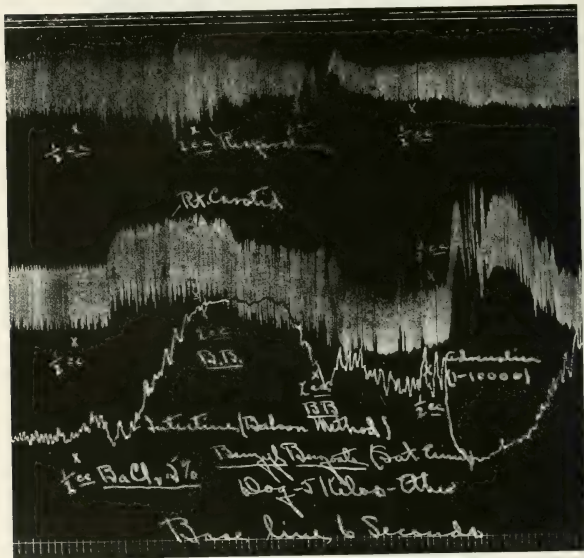 ½ cc
2 cc
½ cc
Rt. Carotid
½ cc
½ cc
2 cc
B.B.
Adrenalin
(1-10000)
2 cc
BB
½ cc
Intestine (Baloon Method)
½ cc BaCl₂ 5%
Benzyl Benzoate (Sat.
Dog-5 Kilos-Ether
Base line, 6 Seconds